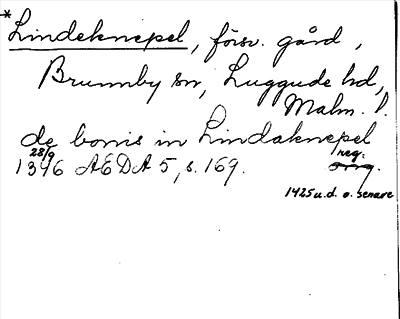 *Lindeknepel, försv. gård,
Brunnby sn, Luggude hd,
Malm. l.
de bonis in Lindaknepel
28/9 reg.
1346 AEDA 5, s. 169. orig.
1425 u.d. o. senare